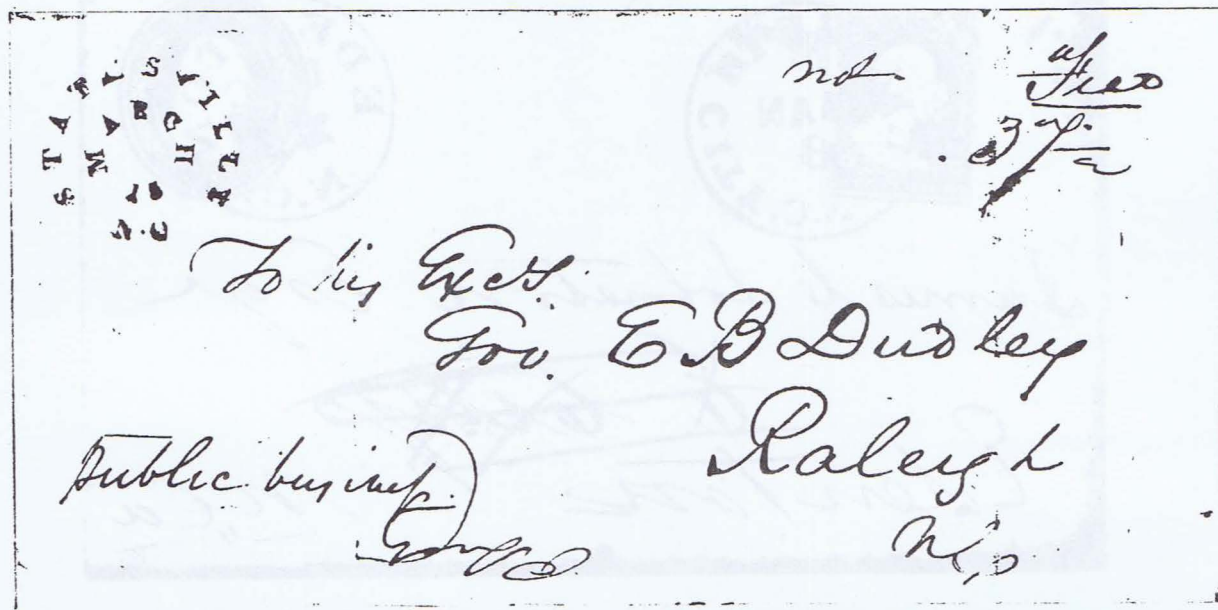 STATESVILLE
MARCH
N.C
not Free
To his Excy.
Gov. E B Dudley
Raleigh
N.C
Public business